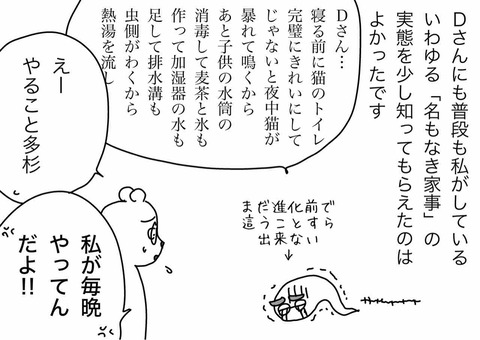 Dさんにも普段も私がしている
いわゆる「名もなき家事」の
実態を少し知ってもらえたのは
よかったです
Dさん…
寝る前に猫のトイレ
完璧にきれいにして
じゃないと夜中猫が
暴れて鳴くから
あと子供の水筒の
消毒して麦茶と氷も
作って加湿器の水も
足して排水溝も
虫側がわくから
熱湯を流し
えー
やること多杉
私が毎晩
やってん
だよ!!
まだ進化前で
這うことすら
出来ない